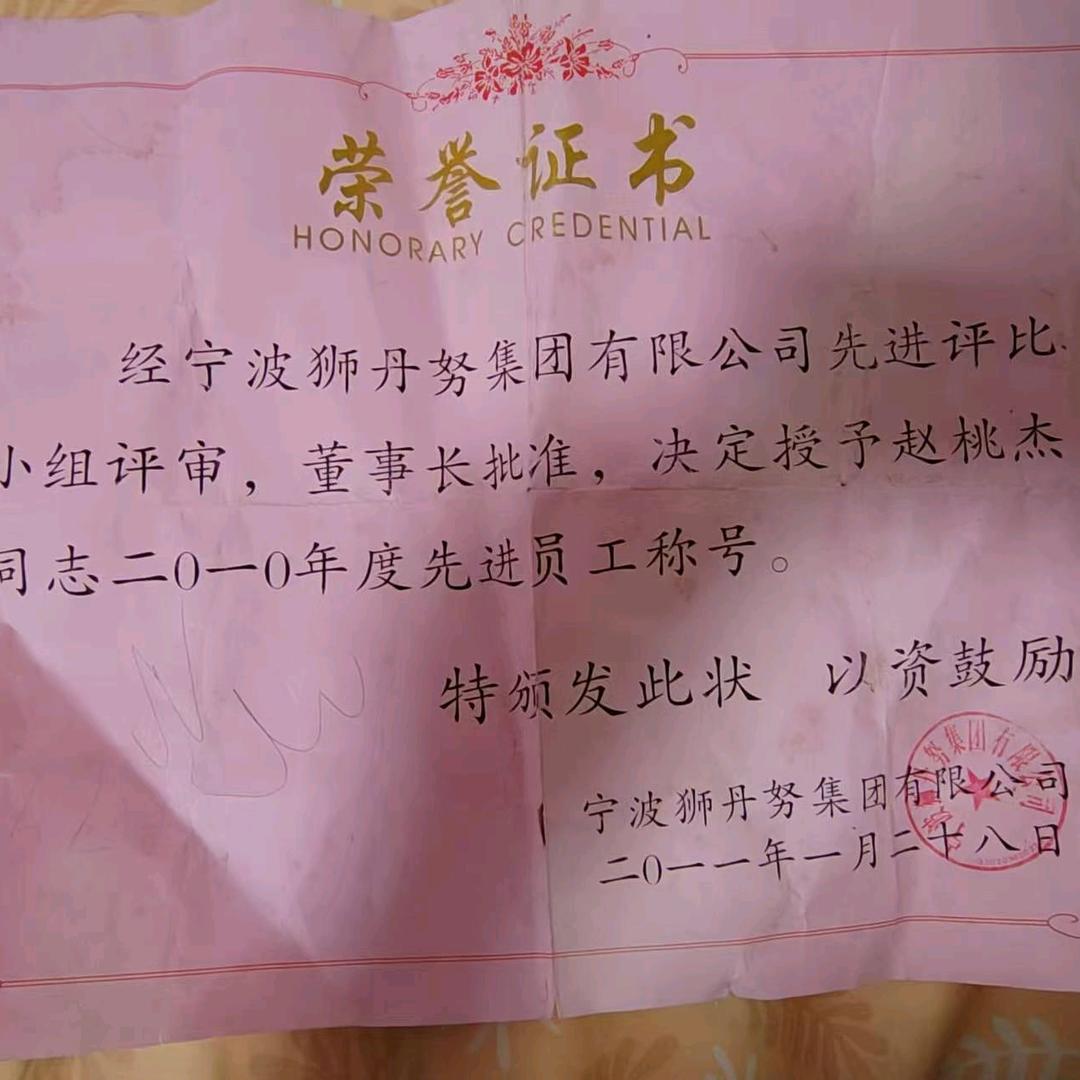 荣誉证书
HONORARY CREDENTIAL
经宁波狮丹努集团有限公司先进评比
小组评审，董事长批准，决定授予赵桃杰
同志二〇一〇年度先进员工称号。
特颁发此状 以资鼓励
努集团有限公司
宁波狮丹努集团有限公司
二〇一一年一月二十八日